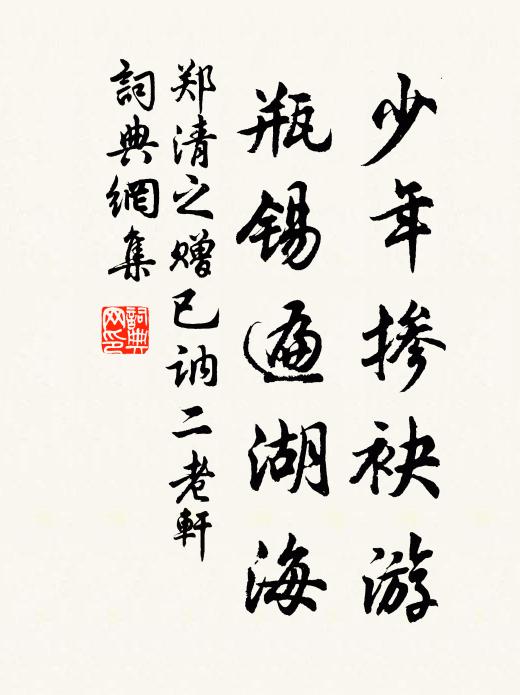 少年掺袂游
瓶锡遍湖海
郑清之赠已讷二老軒
詞典網集
詞典网印